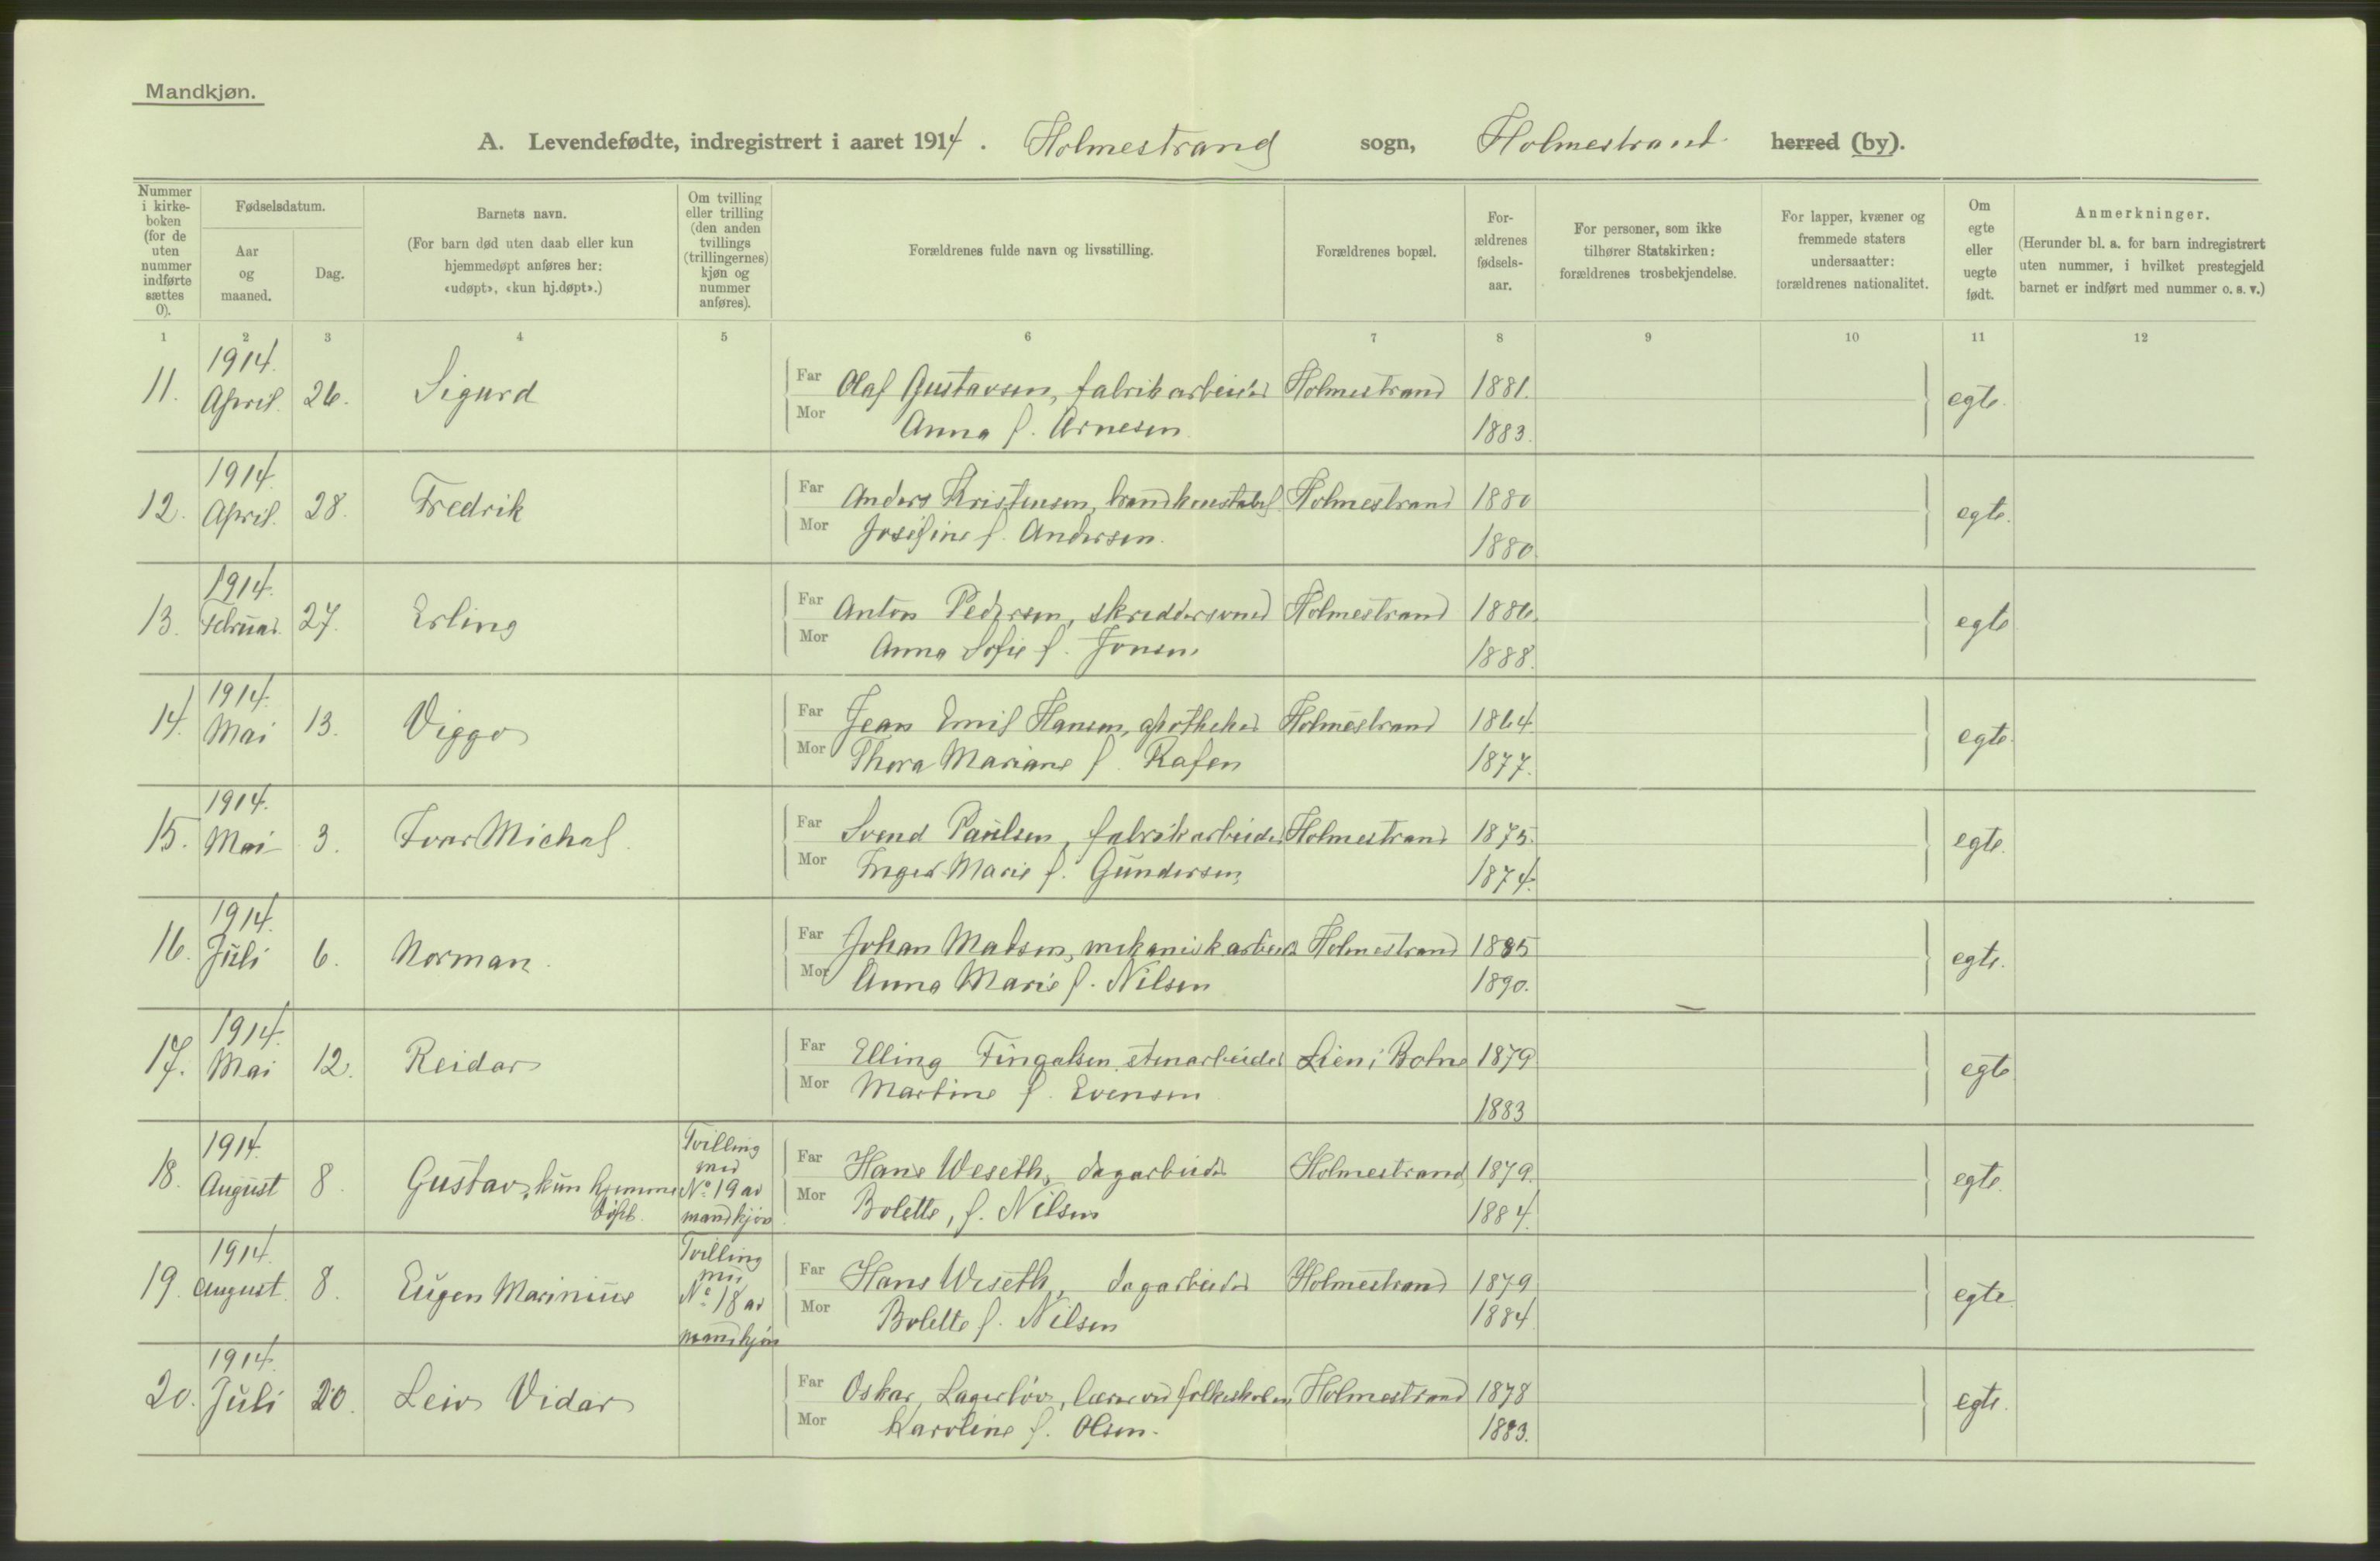 Mandkjøn.
A. Levendefødte, indregistrert i aaret 1914. Holmestrand sogn, Holmestrand herred (by).
Nummer i kirkeboken (for de uten nummer indførte sættes 0).
Fødselsdatum.
Aar og maaned.
Dag.
Barnets navn.
(For barn død uten daab eller kun hjemmedøpt anføres her: «udøpt», «kun hj.døpt».)
Om tvilling eller trilling (den anden tvillings (trillingernes) kjøn og nummer anføres).
Forældrenes fulde navn og livsstilling.
Forældrenes bopæl.
Forældrenes fødselsaar.
For personer, som ikke tilhører Statskirken: forældrenes trosbekjendelse.
For lapper, kvæner og fremmede staters undersaatter: forældrenes nationalitet.
Om egte eller uegte født.
Anmerkninger.
(Herunder bl. a. for barn indregistrert uten nummer, i hvilket prestegjeld barnet er indført med nummer o. s. v.)
1 2 3 4 5 6 7 8 9 10 11 12
11. 1914. April. 26. Sigurd Far Olaf Gustavsen, fabrikarbeider Holmestrand 1881. egte.
Mor Anna f. Arnesen 1883.
12. 1914. April. 28. Fredrik Far Anders Kristensen, brandkonstabel Holmestrand 1880 egte.
Mor Josefine f. Andersen. 1880.
13. 1914. Februar 27. Erling Far Anton Pedersen, skreddersvend Holmestrand 1886. egte
Mor Anna Sofie f. Jonsen 1888.
14. 1914. Mai 13. Viggo Far Jean Emil Hansen, apotheker Holmestrand 1864. egte.
Mor Thora Mariane f. Rafen 1877.
15. 1914. Mai 3. Ivar Michal. Far Svend Paulsen, fabrikarbeider Holmestrand 1875. egte.
Mor Inger Marie f. Gundersen 1874.
16. 1914. Juli 6. Norman. Far Johan Madsen, mekanisk arbeider Holmestrand 1885 egte.
Mor Anna Marie f. Nilsen 1890.
17. 1914. Mai 12. Reidar Far Elling Fingalsen, stenarbeider Lien i Botne 1879 egte
Mor Martine f. Evensen 1883
18. 1914. August 8. Gustav, kun hjemme døpt. Tvilling med No 19 av mandkjøn Far Hans Weseth, dagarbeider Holmestrand 1879. egte.
Mor Bolette, f. Nilsen 1884.
19. 1914. August 8. Eugen Marinius Tvilling med No 18 av mandkjøn Far Hans Weseth, dagarbeider Holmestrand 1879 egte.
Mor Bolette f. Nilsen 1884.
20. 1914. Juli 20. Leiv Vidar Far Oskar Lagerløv, lærer ved folkeskolen Holmestrand 1878 egte.
Mor Karoline f. Olsen. 1883.